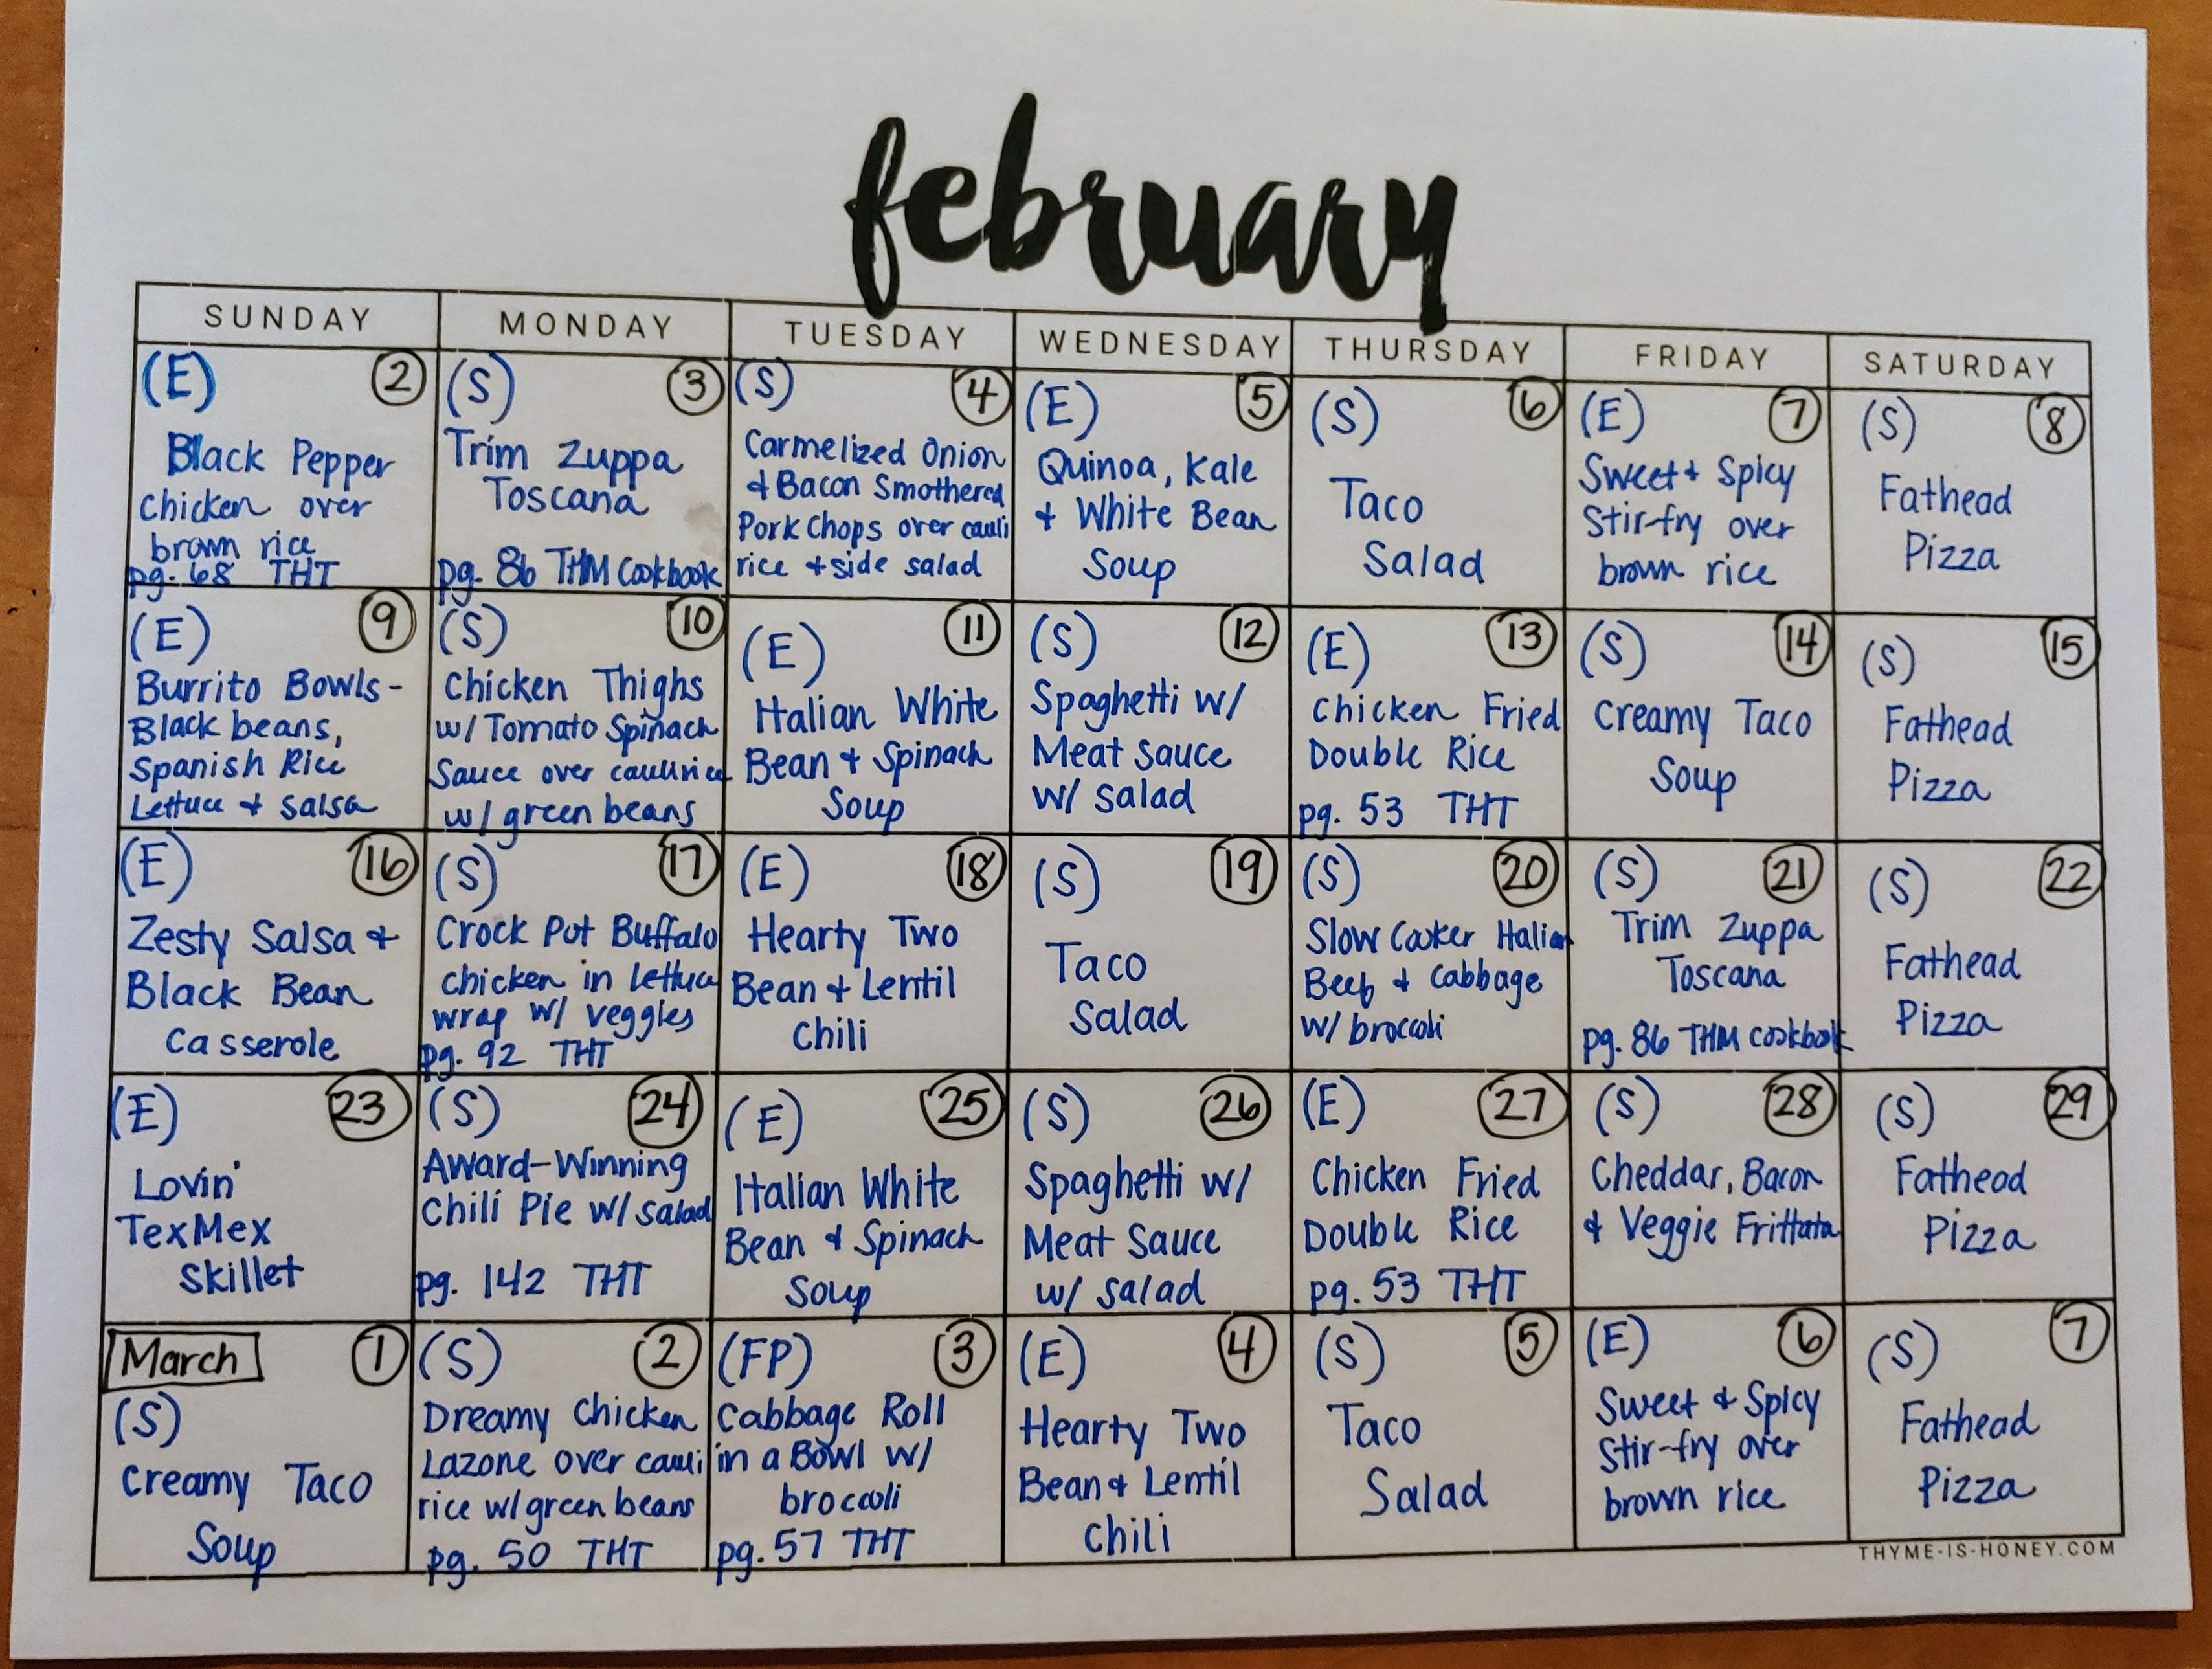 february
SUNDAY
MONDAY
TUESDAY
WEDNESDAY
THURSDAY
FRIDAY
SATURDAY
(E) 2
Black Pepper
chicken over
brown rice
pg. 68 THT
(S) 3
Trim Zuppa
Toscana
pg. 86 THM Cookbook
(S) 4
Carmelized Onion
& Bacon Smothered
Pork Chops over cauli
rice + side salad
(E) 5
Quinoa, Kale
+ White Bean
Soup
(S) 6
Taco
Salad
(E) 7
Sweet + Spicy
Stir-fry over
brown rice
(S) 8
Fathead
Pizza
(E) 9
Burrito Bowls-
Black beans,
Spanish Rice
Lettuce & Salsa
(S) 10
Chicken Thighs
w/ Tomato Spinach
Sauce over caulirice
w/ green beans
(E) 11
Italian White
Bean & Spinach
Soup
(S) 12
Spaghetti w/
Meat Sauce
w/ salad
(E) 13
Chicken Fried
Double Rice
pg. 53 THT
(S) 14
Creamy Taco
Soup
(S) 15
Fathead
Pizza
(E) 16
Zesty Salsa &
Black Bean
Casserole
(S) 17
Crock Pot Buffalo
chicken in lettuce
wrap w/ veggies
pg. 92 THT
(E) 18
Hearty Two
Bean & Lentil
Chili
(S) 19
Taco
Salad
(S) 20
Slow Cooker Italian
Beef & Cabbage
w/ broccoli
(S) 21
Trim Zuppa
Toscana
pg. 86 THM cookbook
(S) 22
Fathead
Pizza
(E) 23
Lovin'
TexMex
Skillet
(S) 24
Award-Winning
Chili Pie w/ salad
pg. 142 THT
(E) 25
Italian White
Bean & Spinach
Soup
(S) 26
Spaghetti w/
Meat Sauce
w/ salad
(E) 27
Chicken Fried
Double Rice
pg. 53 THT
(S) 28
Cheddar, Bacon
& Veggie Frittata
(S) 29
Fathead
Pizza
March 1
(S)
Creamy Taco
Soup
(S) 2
Dreamy Chicken
Lazone over cauli
rice w/green beans
pg. 50 THT
(FP) 3
Cabbage Roll
in a Bowl w/
broccoli
pg. 57 THT
(E) 4
Hearty Two
Bean & Lentil
Chili
(S) 5
Taco
Salad
(E) 6
Sweet & Spicy
Stir-fry over
brown rice
(S) 7
Fathead
Pizza
THYME-IS-HONEY.COM